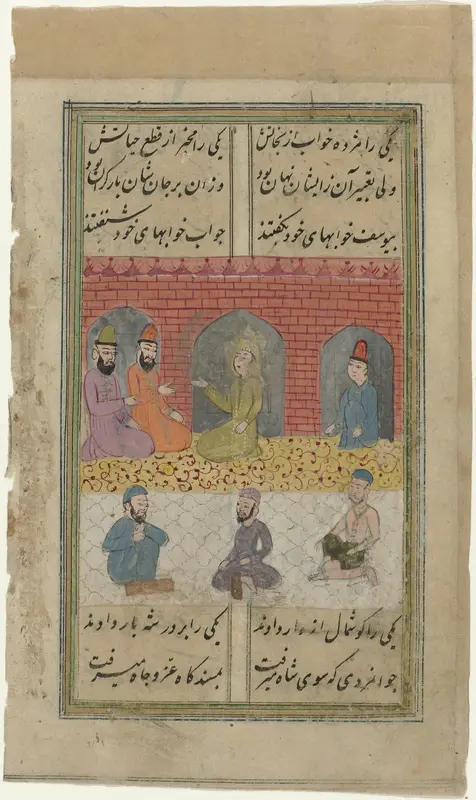 یکی را مژده ده خواب از نجاتش یکی را مخبر از قطع حیاتش
ولی تعبیر آن زایشان نهان بود وزان بر جان شان بار گران بود
بیوسف خوابهای خود بگفتند جواب خوابهای خود شنفتند
یکی را گوشمال از دار دادند یکی را بر در شه بار دادند
جوانمردی که سوی شاه میرفت بمسندگاه عز و جاه میرفت